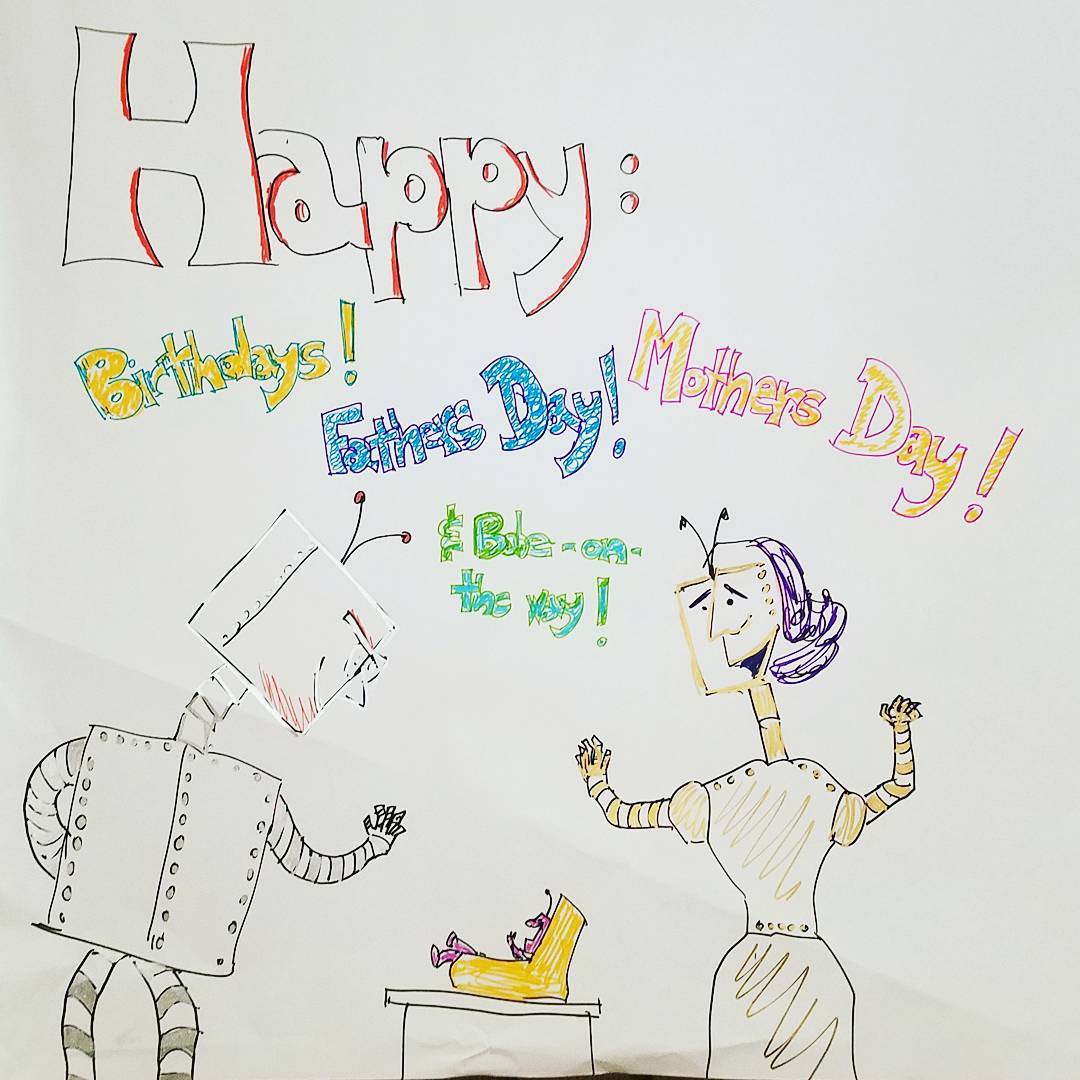 Happy:
Birthdays!
Fathers Day!
Mothers Day!
& Babe-on-
the way!